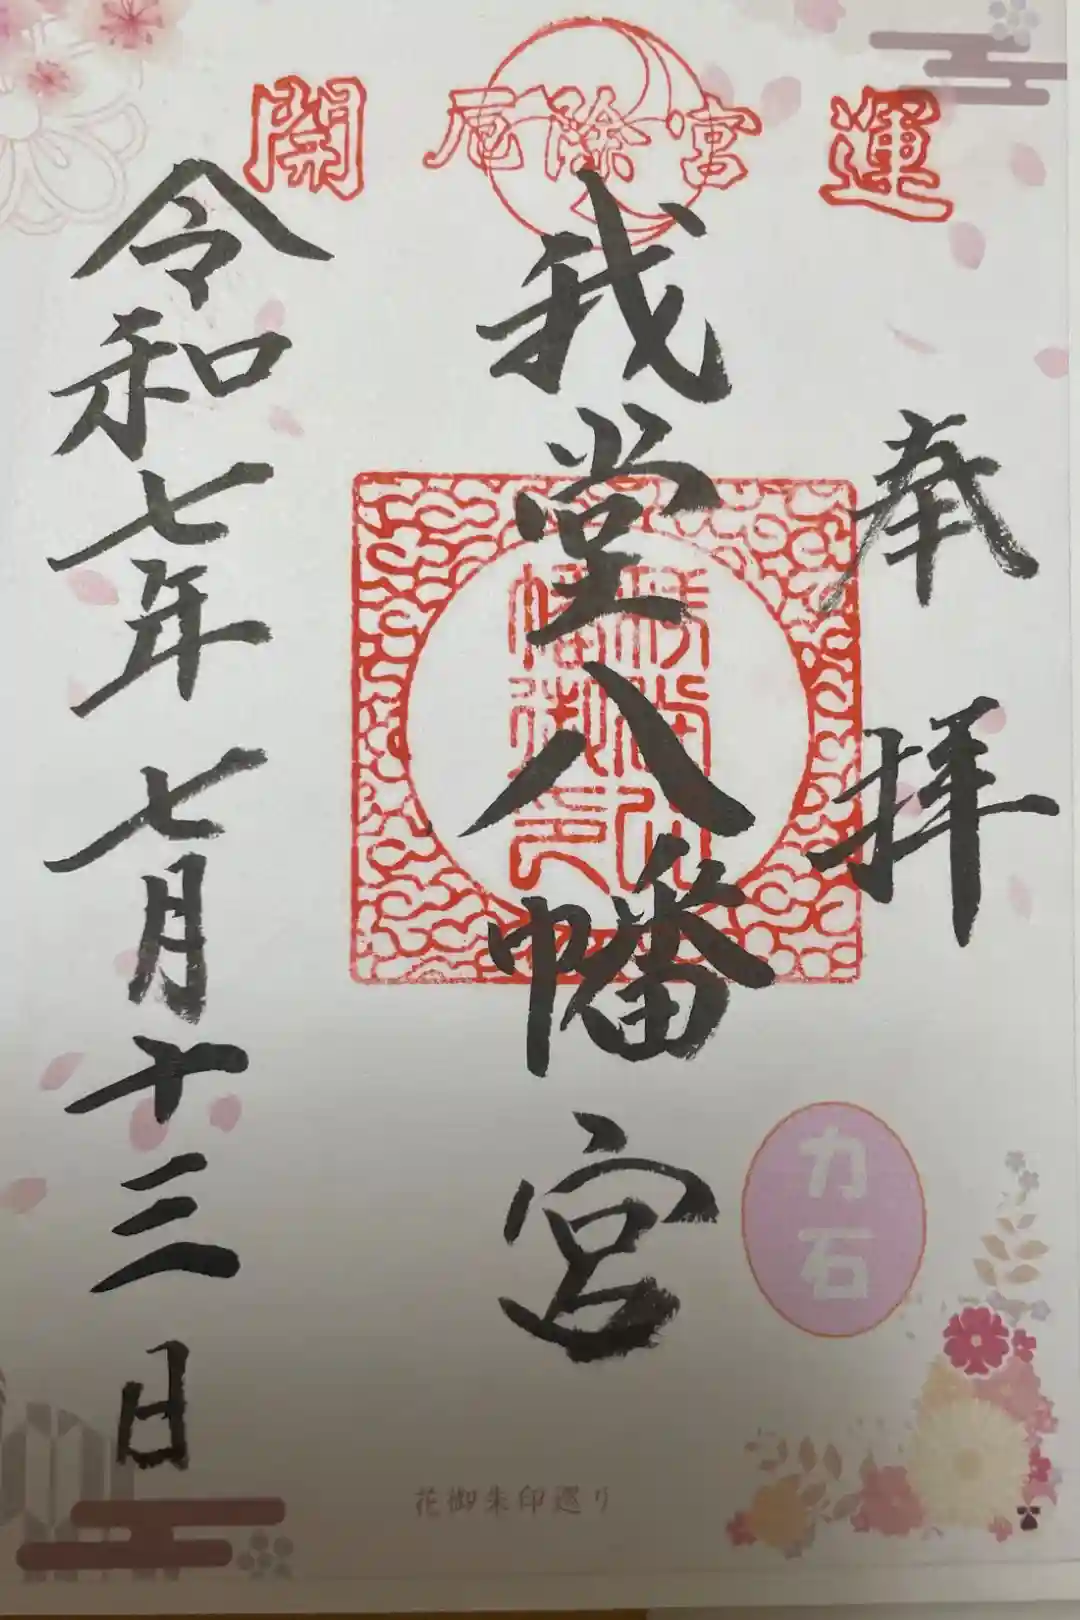 開 厄除宮 運
奉拝
我堂八幡宮
令和七年七月十三日
力石
花御朱印巡り